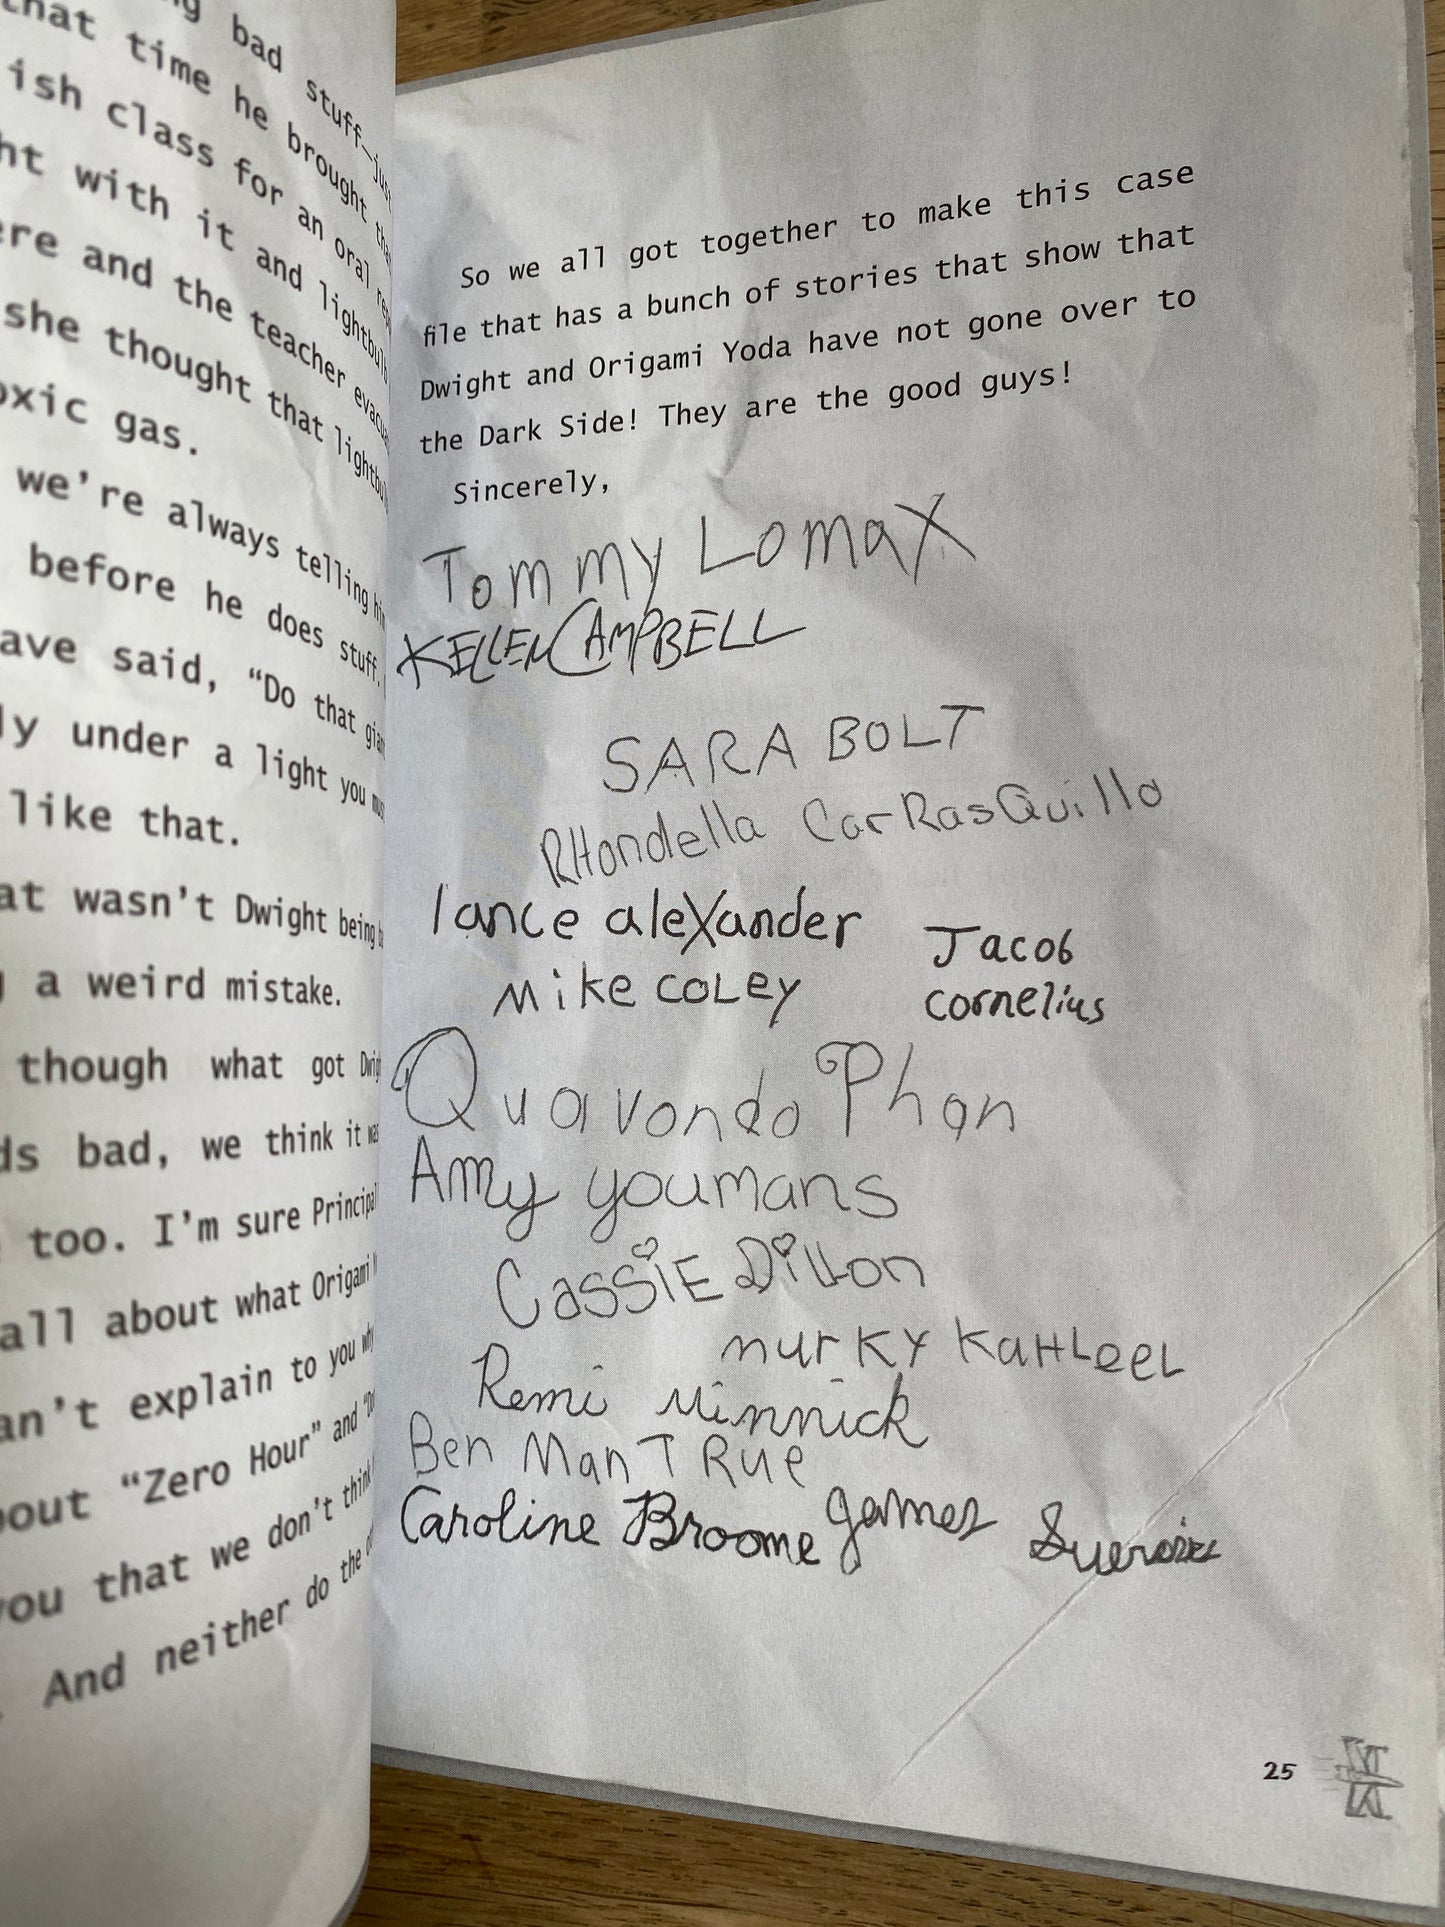 bad stuff—
that time he brought
ish class for an oral
with it and
and the teacher
she thought that
gas.
we're always telling
before he does stuff.
said, "Do that
under a light you
like that.
wasn't Dwight being
a weird mistake.
though what got
bad, we think it
too. I'm sure
all about what Origami
explain to you
"Zero Hour" and
that we don't think
And neither do the
So we all got together to make this case
file that has a bunch of stories that show that
Dwight and Origami Yoda have not gone over to
the Dark Side! They are the good guys!
Sincerely,
Tommy Lomax
KELLEN CAMPBELL
SARA BOLT
RHondella CarRasQuillo
lance aleXander
Jacob
Mike COLEY
cornelius
Quavondo Phan
Amy youmans
CassiE Dillon
murKY KaHLeeL
Remi Minnick
Ben ManTRue
Caroline Broome
25